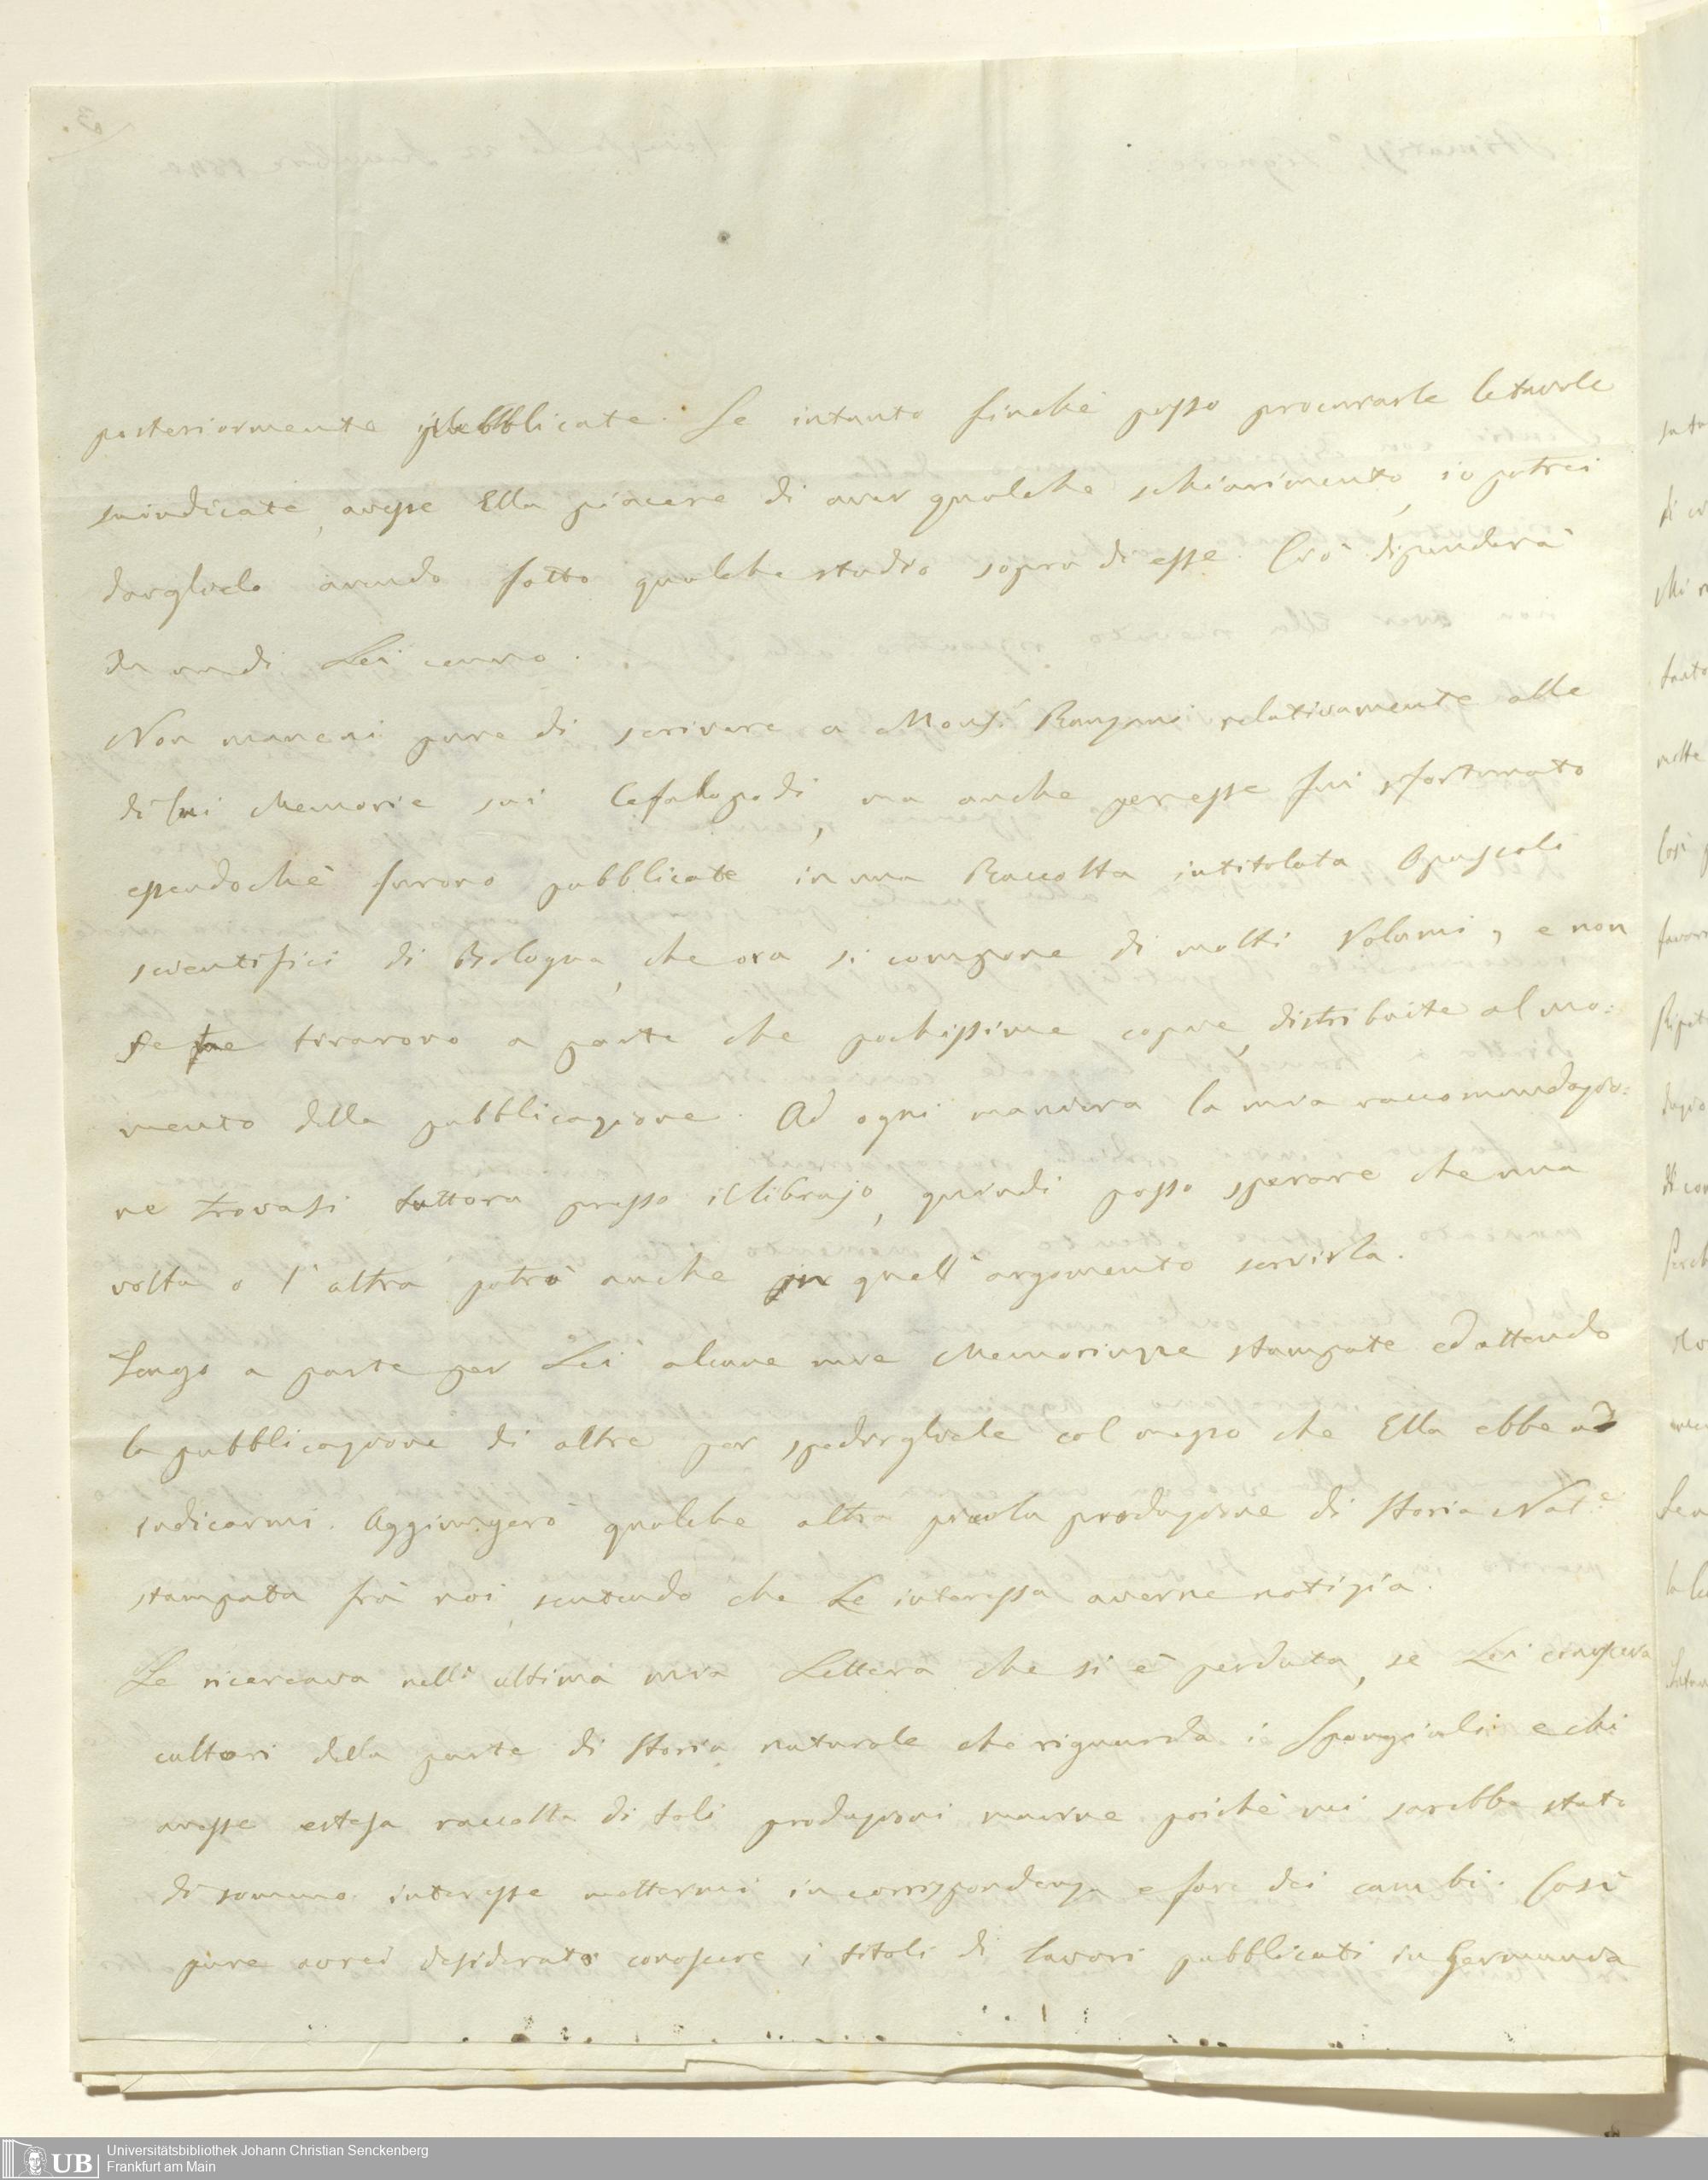 posteriormente pubblicate. Se intanto finchè posso procurarle le tavole
suindicate, avesse Ella piacere di aver qualche schiarimento, io potrei
darglielo avendo fatto qualche studio sopra di esse. Ciò dipenderà
da un di Lei cenno.
Non mancai pure di scrivere a Mons.r Ranzani relativamente alle
di lui Memorie sui Cefalopodi, ma anche per esse fui sfortunato
essendochè furono pubblicate in una Raccolta intitolata Opuscoli
scientifici di Bologna, che ora si compone di molti Volumi, e non
se ne tirarono a parte che pochissime copie, distribuite al mo:
mento della pubblicazione. Ad ogni maniera la mia raccomandazio:
ne trovasi tuttora presso il librajo, quindi posso sperare che una
volta o l'altra potrò anche in quell'argomento servirla.
Tengo a parte per Lei alcune mie Memoriuzze stampate ed attendo
la pubblicazione di altre per spedirgliele col mezzo che Ella ebbe ad
indicarmi. Aggiungerò qualche altra piccola produzione di Storia Nat.e
stampata frà noi, sentendo che Le interessa averne notizia.
Le ricercava nell'ultima mia Lettera che si è perduta, se Lei conosceva
cultori della parte di Storia naturale che riguarda i Spongiali e chi
avesse estesa raccolta di tali produzioni marine poichè mi sarebbe stato
di sommo interesse mettermi in corrispondenza e fare dei cambi. Così
pure avrei desiderato conoscere i titoli di lavori pubblicati in Germania
Universitätsbibliothek Johann Christian Senckenberg
Frankfurt am Main
UB